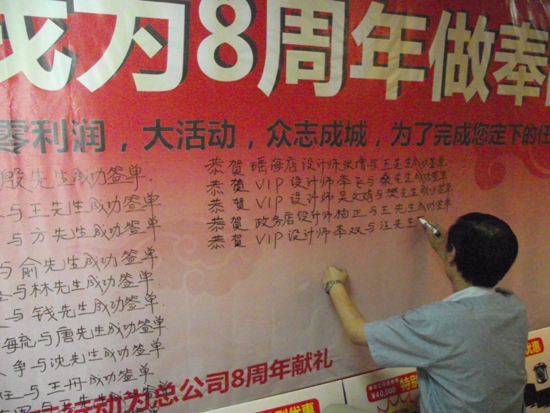 我为8周年做奉
零利润，大活动，众志成城，为了完成您定下的任
殷先生成功签单.
与王先生成功签单
与方先生成功签单.
与俞先生成功签单.
与林先生成功签单.
与钱先生成功签单
与唐先生成功签单.
与沈先生成功签单.
与王册成功签单
恭贺瑶海店设计师 与王先生成功签单
恭贺VIP设计师李飞与桑先生成功签单
恭贺VIP设计师吴文娟与樊先生成功签单
恭贺政务店设计师柏正与王先生成功签单
恭贺VIP设计师李双与汪先生
行动为总公司8周年献礼
特别
优惠
¥40,000